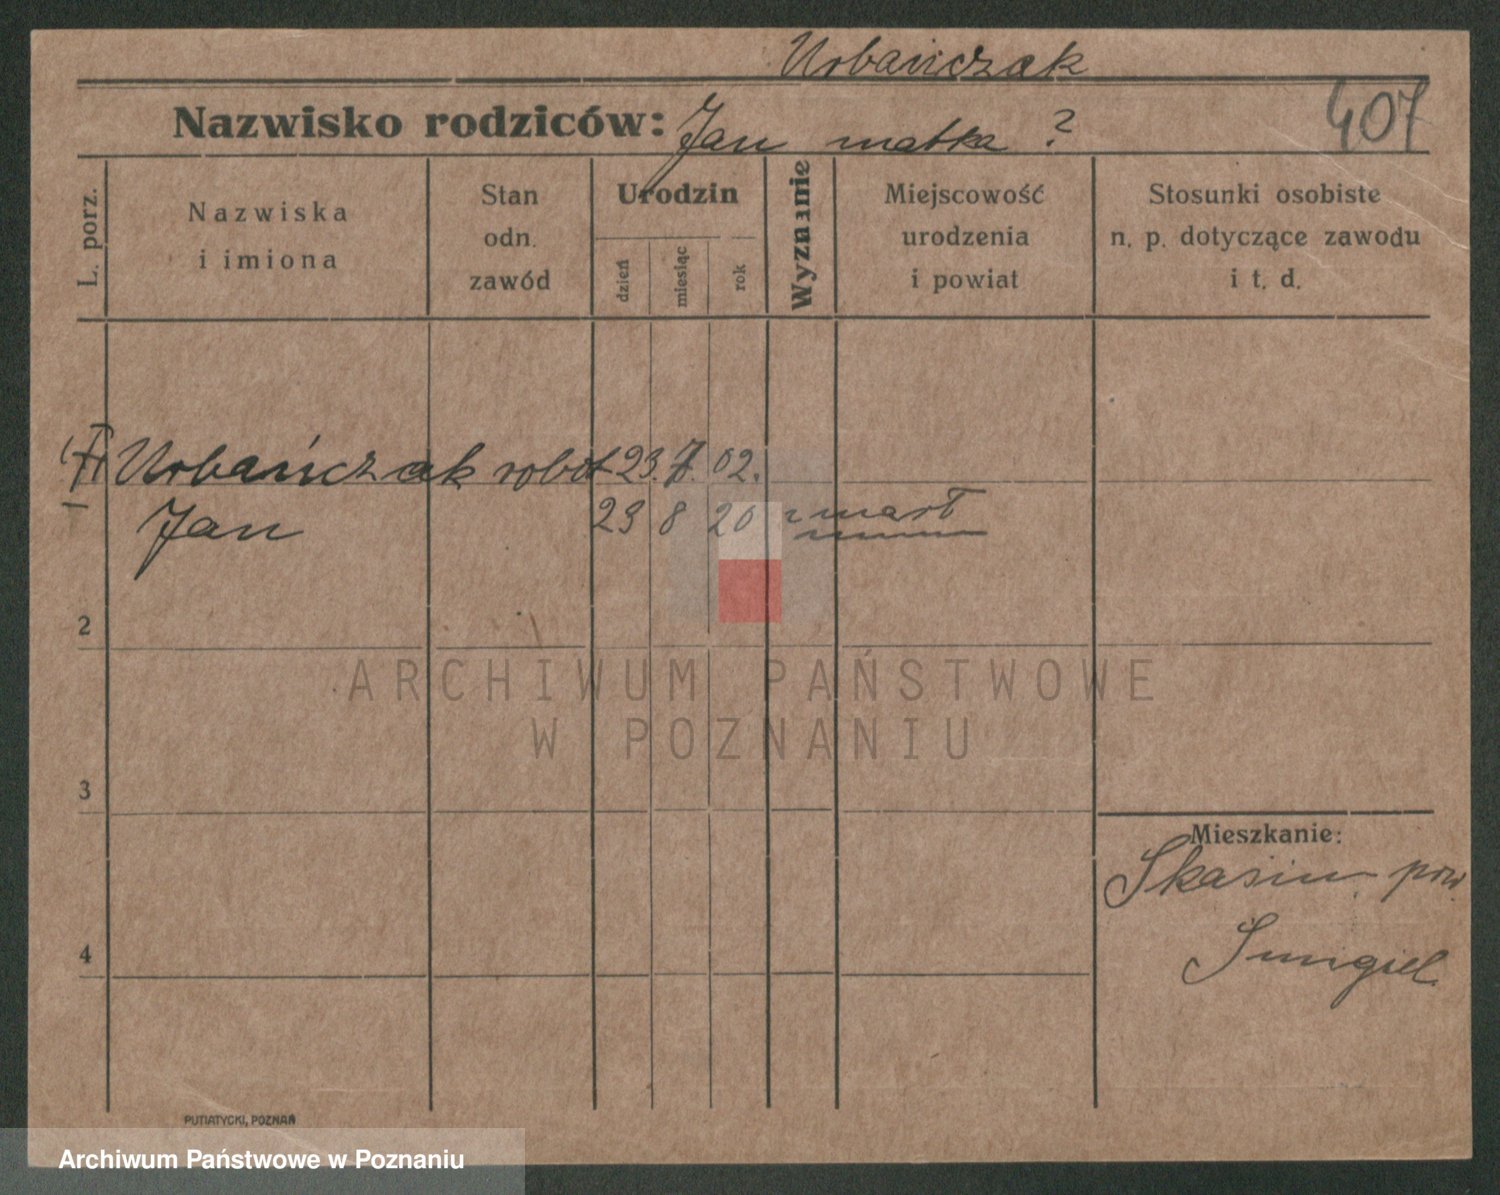 Urbańczak
Nazwisko rodziców: Jan matka ?
407
L. porz.
Nazwiska
i imiona
Stan
odn.
zawód
Urodzin
dzień
miesiąc
rok
Wyznanie
Miejscowość
urodzenia
i powiat
Stosunki osobiste
n. p. dotyczące zawodu
i t. d.
Urbańczak robot 23. 7. 02.
Jan 29 8 20 zmarł
2
ARCHIWUM PAŃSTWOWE
W POZNANIU
3
Mieszkanie:
pow
Śmigiel
4
PUTIATYCKI, POZNAŃ
Archiwum Państwowe w Poznaniu